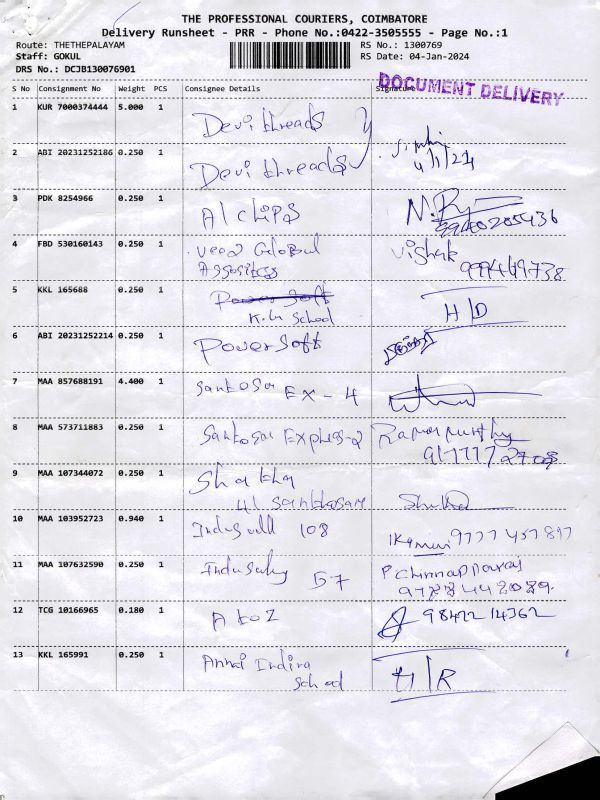 THE PROFESSIONAL COURIERS, COIMBATORE
Delivery Runsheet - PRR - Phone No.:0422-3505555 - Page No.:1
Route: THETHEPALAYAM
RS No.: 1300769
Staff: GOKUL
RS Date: 04-Jan-2024
DRS No.: DCJB130076901
DOCUMENT DELIVERY
S No Consignment No Weight PCS Consignee Details Signature
1 KUR 7000374444 5.000 1 Devi threads
2 ABI 20231252186 0.250 1 Devi threads 4/1/24
3 PDK 8254966 0.250 1 AI chips
4 FBD 530160143 0.250 1 Global
5 KKL 165688 0.250 1 Power soft H/D
K.G School
6 ABI 20231252214 0.250 1 Power soft
7 MAA 857688191 4.400 1 EX - 4
8 MAA 573711883 0.250 1 Ramamurthy
9 MAA 107344072 0.250 1
10 MAA 103952723 0.940 1 108 9777457897
11 MAA 107632590 0.250 1 57 P Chinnapparaj
12 TCG 10166965 0.180 1 A to Z 98422 14362
13 KKL 165991 0.250 1 Annai Indira
School